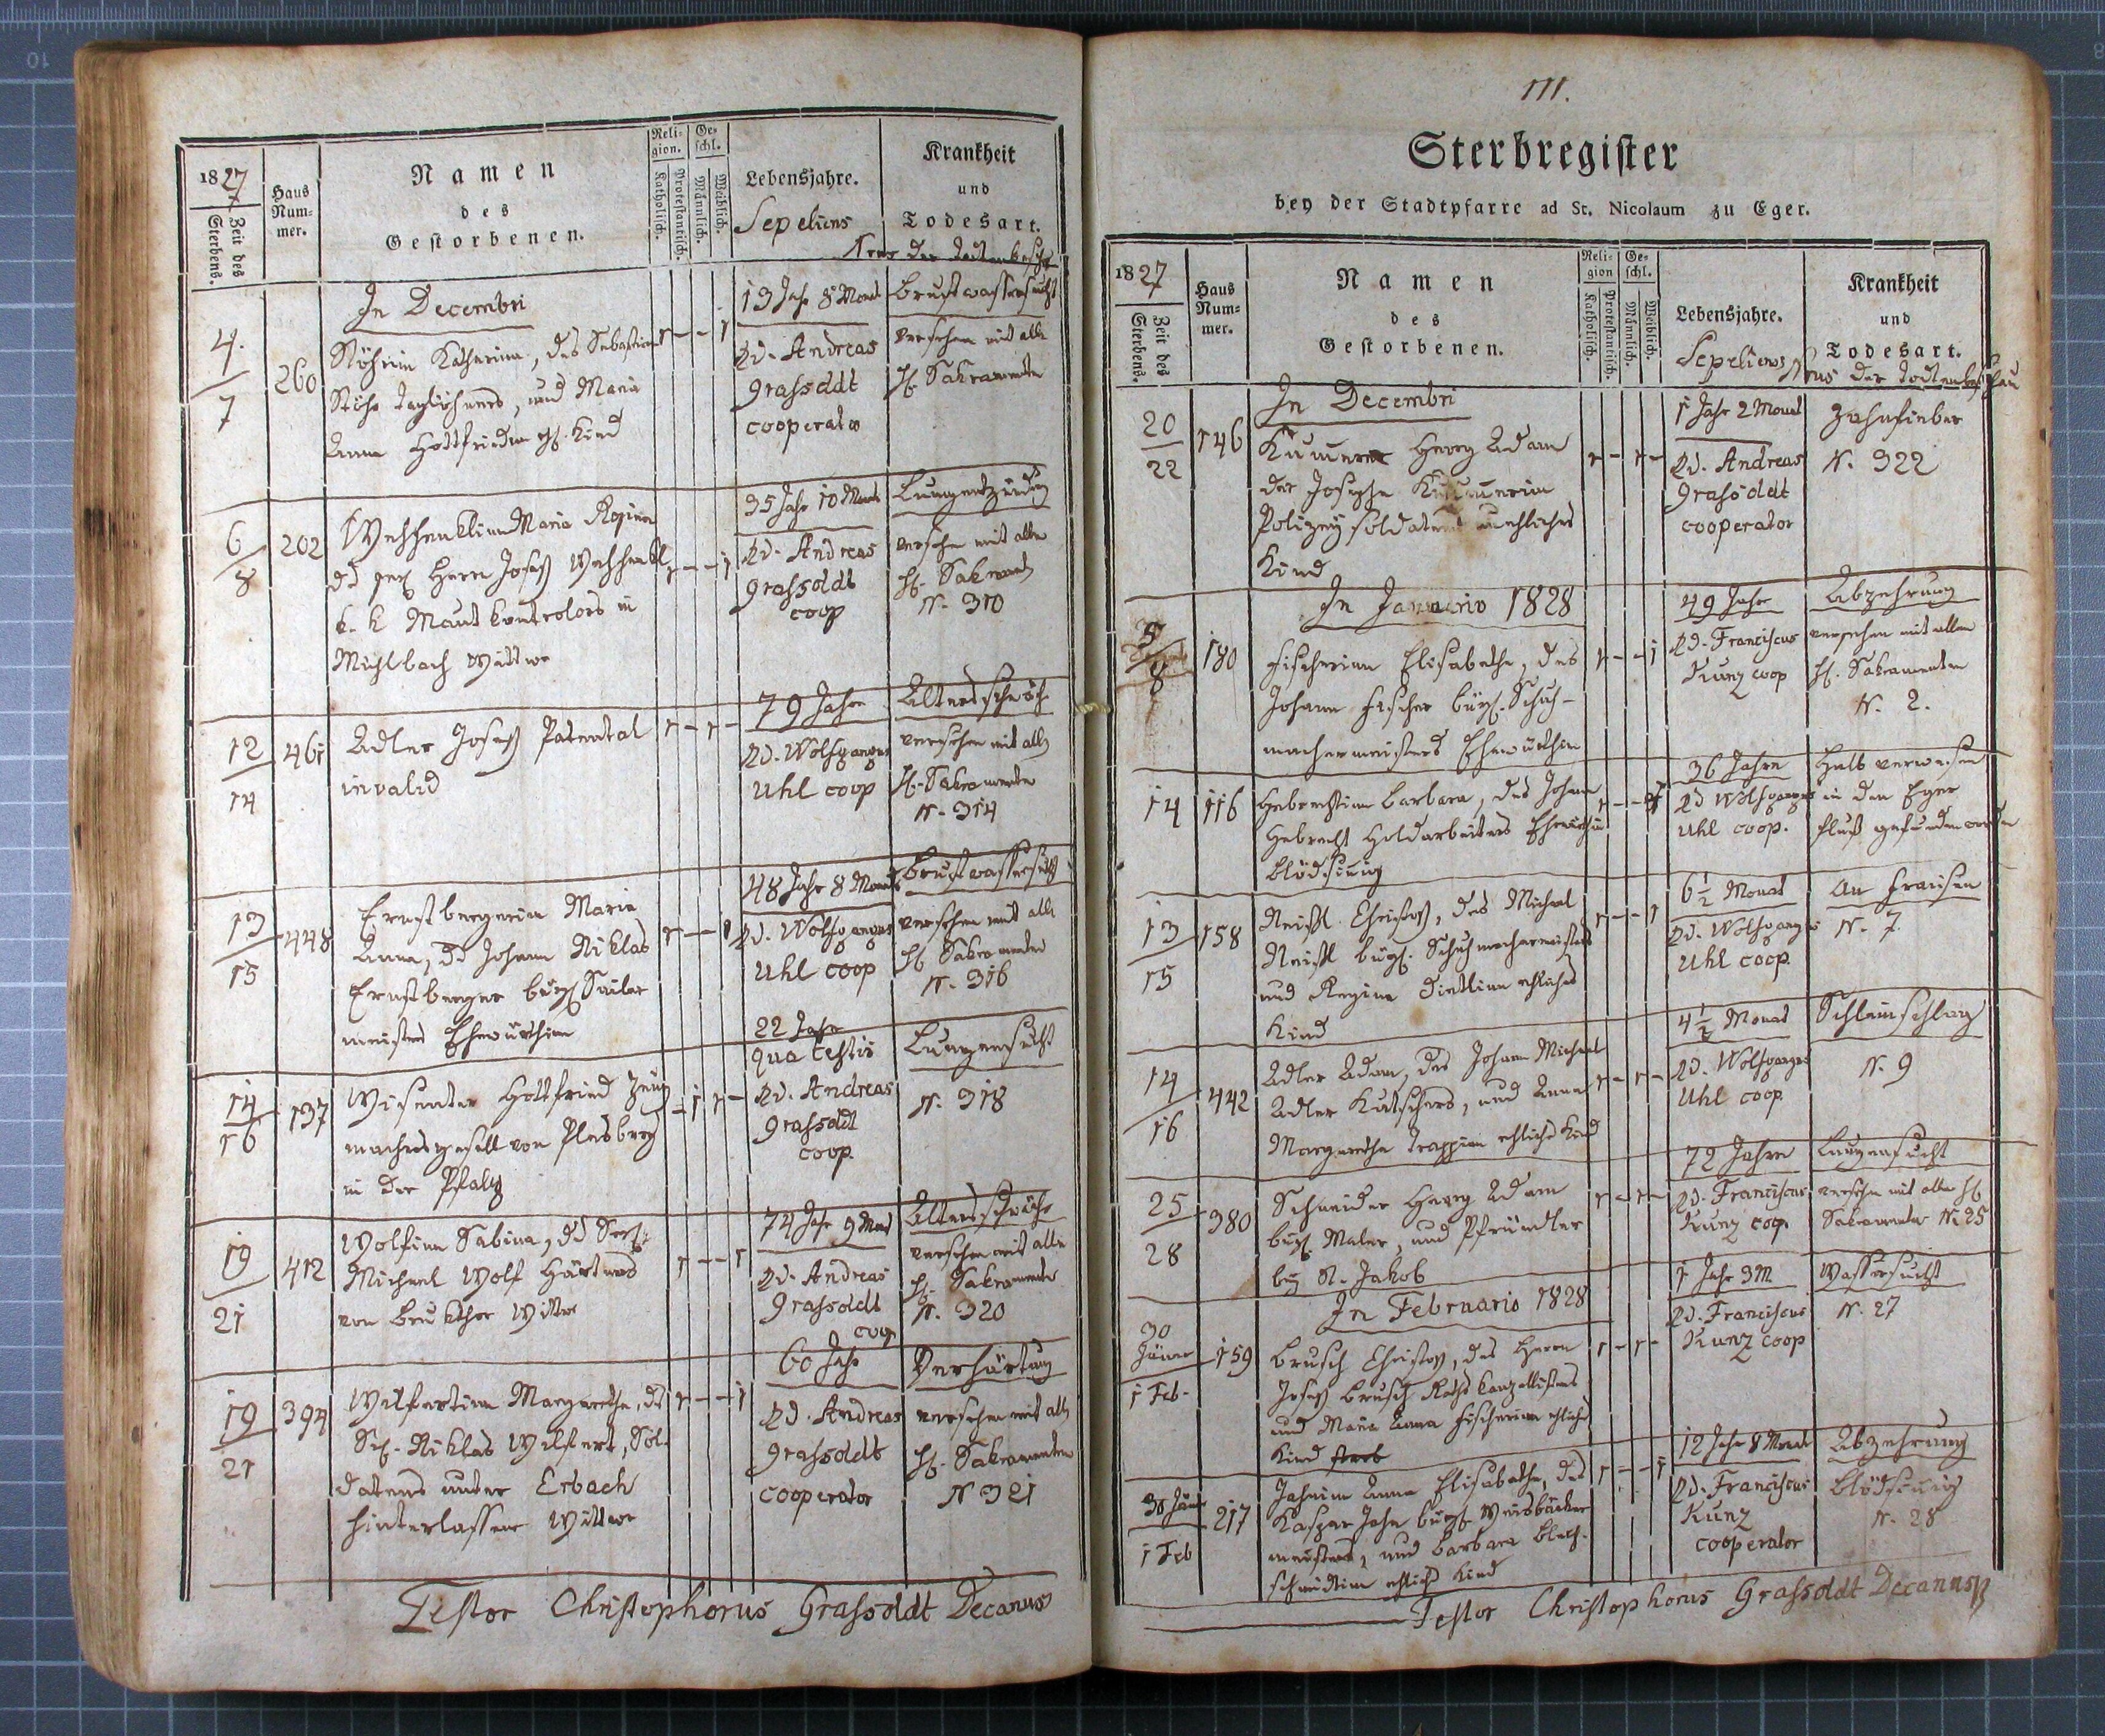 1827
Zeit des Sterbens.
Haus Num= mer.
Namen
des
Gestorbenen.
Reli= gion.
Katholisch.
Protestantisch.
Ge= schl.
Männlich.
Weiblich.
Lebensjahre.
Sepeliens
Krankheit
und
Todesart.
Nrus der Todtenbeschau
In Decembri
4.
7
260
Stöhrin Katharina, des Sebastian
Stöhr Taglöhners, und Maria
Anna Gottfriedin ehl. Kind
13 Jahr 8 Monat
Ad. Andreas
Grassoldt
cooperator
Brustwassersucht
versehen mit allen
hl. Sakramenten
6
8
202
Maria
dd Herrn Joseph
k. k. Mautkontrolors in
Mühlbach Wittwe
35 Jahr 10 Monat
Ad. Andreas
Grassoldt
coop
Lungenentzündung
versehen mit allen
hl. Sakrament
N. 310
12
14
461
Adler Joseph Patental
invalid
79 Jahr
Ad. Wolfgangus
Uhl coop
Altersschwäche
versehen mit allen
hl. Sakramenten
N. 314
13
15
448
Ernstbergerin Maria
Anna, dd Johann Niklas
Ernstberger bürgl Sailer
meisters Ehewürthin
48 Jahr 8 Monat
Ad. Wolfgangus
Uhl coop
Brustwassersucht
versehen mit allen
hl Sakramenten
N. 316
14
16
137
Gottfried Zeug
machersgesell von
in der Pfalz
22 Jahr
qua testis
Ad. Andreas
Grassoldt
coop.
Lungensucht
N. 318
19
21
412
Wolfinn Sabina, dd
Michael Wolf Gärtners
von Wittwe
74 Jahr 9 Monat
Ad. Andreas
Grassoldt
coop
Altersschwäche
versehen mit allen
hl. Sakramenten
N. 320
19
21
394
Wilfertinn Margaretha, dd
Sel. Niklas Wilfert, Sol-
datens unter Erbach
hinterlassene Wittwe
60 Jahr
Ad. Andreas
Grassoldt
cooperator
Verhärtung
versehen mit allen
hl. Sakramenten
N 321
Testor Christophorus Grassoldt Decanus
111.
Sterbregister
bey der Stadtpfarre ad St. Nicolaum zu Eger.
1827
Zeit des Sterbens.
Haus Num= mer.
Namen
des
Gestorbenen.
Reli= gion
Katholisch.
Protestantisch.
Ge= schl.
Männlich.
Weiblich.
Lebensjahre.
Sepeliens
Krankheit
und
Todesart.
Nrus der Todtenbeschau
In Decembri
20
22
146
Georg Adam
der Josepha
Polizeysoldatens unehliches
Kind
1 Jahr 2 Monat
Ad. Andreas
Grassoldt
cooperator
Zahnfieber
N. 322
In Januario 1828
5
8
180
Fischerinn Elisabetha, des
Johann Fischer bürgl. Schuh-
machermeisters Ehewürthin
49 Jahr
Ad. Franciscus
Kunz coop
Abzehrung
versehen mit allen
hl. Sakramenten
N. 2.
14
116
Gebrechtinn Barbara, des Johann
Gebrecht Goldarbeiters Ehewürthin
blödsinnig
36 Jahre
Ad Wolfgangus
Uhl coop.
Halb verwesen
in den Eger
fluß gefunden worden
13
15
158
Neißl Christoph, des Michael
Neißl bürgl. Schuhmachermeisters
und Regina Dietlinn ehliches
Kind
6 1/2 Monat
Ad. Wolfgangus
Uhl coop.
An Fraisen
N. 7.
14
16
442
Adler Adam, des Johann Michael
Adler Kutschers, und Anna
Margaretha Trappinn ehliches Kind
4 1/2 Monat
Ad. Wolfgangus
Uhl coop
Schleimschlag
N. 9
25
28
380
Schneider Georg Adam
bürgl. Maler, und Pfründler
bey St. Jakob
72 Jahre
Ad. Franciscus
Kunz coop.
Lungensucht
versehen mit allen hl
Sakramenten N. 25
In Februario 1828
30
Jäner
1 Feb.
159
Brusch Christoph, des Herrn
Joseph Brusch Raths Kanzellistens
und Maria Anna Fischerinn ehliches
Kind
1 Jahr 3 M
Ad. Franciscus
Kunz coop
Wassersucht
N. 27
30 Jäner
1 Feb
217
Jahninn Anna Elisabetha, des
Kaspar Jahn bürgl. Weisbäcker
meisters, und Barbara Blech-
schmidtinn ehliches Kind
12 Jahr 8 Monat
Ad. Franciscus
Kunz
cooperator
Abzehrung
blödsinnig
N. 28
Testor Christophorus Grassoldt Decanus